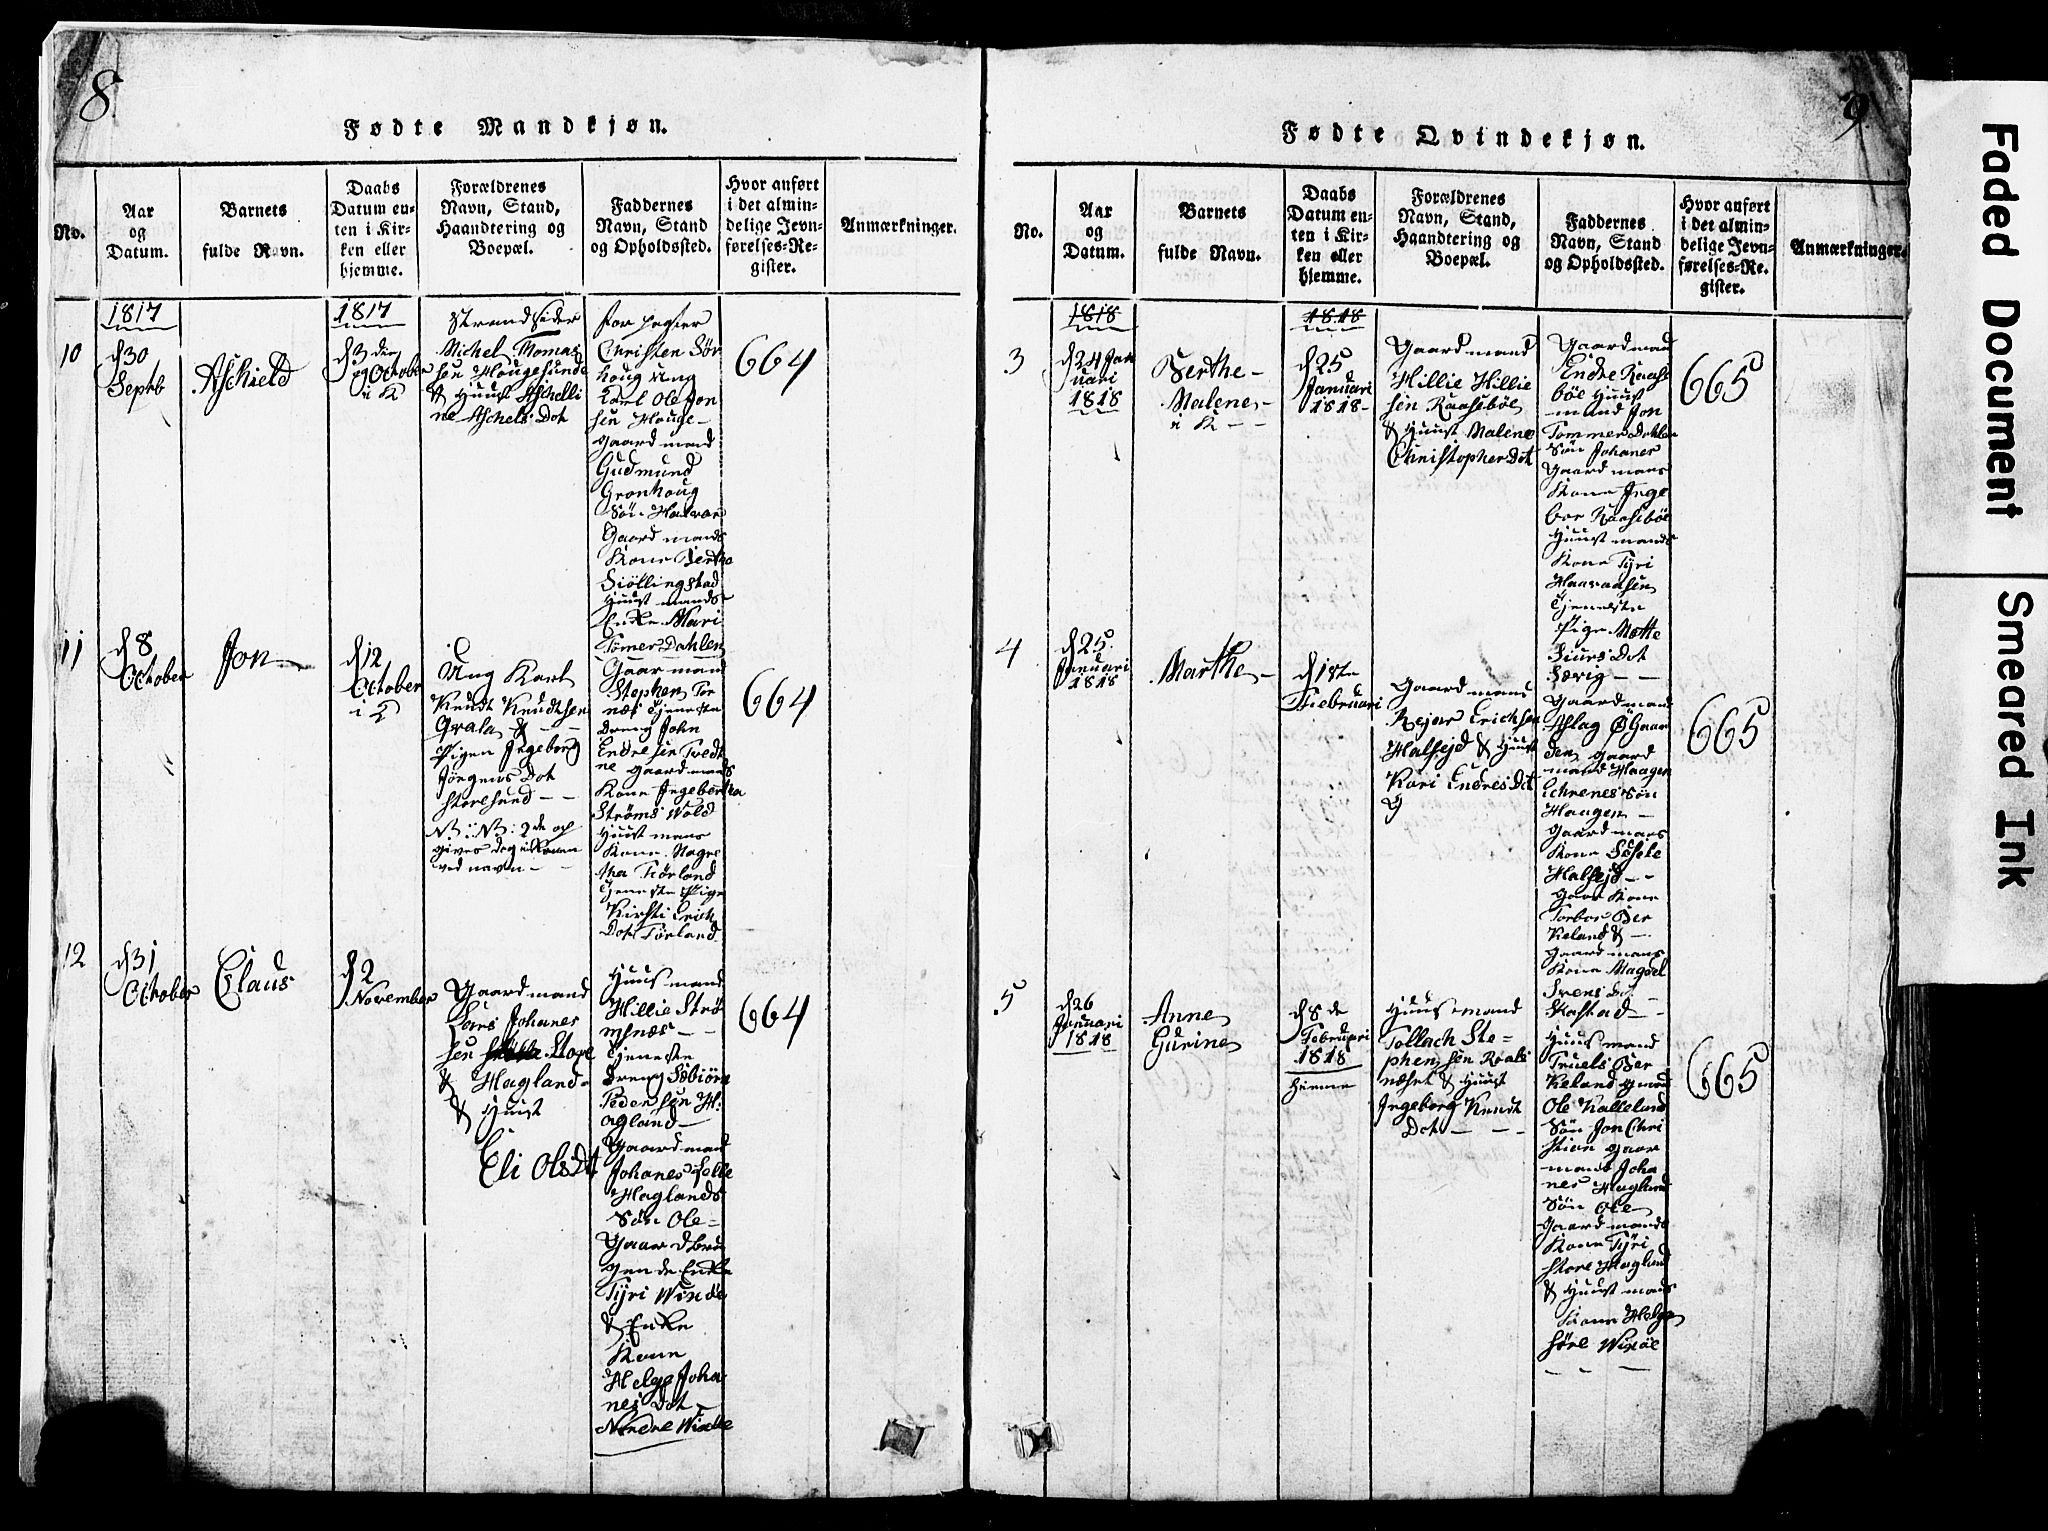 8
Fødte Mandkjøn.
No.
Aar
og
Datum.
Barnets
fulde Navn.
Daabs
Datum en-
ten i Kir-
ken eller
hjemme.
Forældrenes
Navn, Stand,
Haandtering og
Boepæl.
Faddernes
Navn, Stand
og Opholdssted.
Hvor anført
i det almin-
delige Jevn-
førelses-Re-
gister.
Anmærkninger.
1817
10
d30
Septb
Aschield
1817
October
i K
Strandsider
Michel Thomas
sen Hougesund
& Huust Aschelli
ne Aschels Dot
Christen Sør
houg Ung
Karl Ole Jon
sen Houge-
gaard mand
Gudmund
Gronhoug
Søn Halvor
Gaard mands
Kone Bertha
Siøllingstad
Huust mands
Enke Mari
Tømer Dahlen
664
11
d8
October
Jon
d12
October
i K
Ung Karl
Knudt Knudtsen
Qvala &
Pigen Ingeborg
Jörgens Dot
Storesund - -
NB: NB: 2de
ved navn -
Gaar mand
Stephen Tor
næs Tjeneste
Dreng John
Endresen Tvedt
ne gaard mands
Kone Ingebørka
Strøms Wold
Huust mans
Kone Magre
tha Tiørland
Tjeneste Pige
Kirsti Erich
Dot Tørland
664
12
d31
October
Claus
d2
November
Gaardmand
Lars Johanes
sen Store
& Hagland
& Huust
Eli Olsdt
Huus mand
Hillie Strø
msnæs - -
Tjeneste
Dreng Sebiørn
Pedersen H
agland -
Gaardmand
Johanes Lelle
Haglands
Søn Ole -
Gaard bru
gende Enke
Tyri Winde
& Enke
Kone
Helge Joha
nes Dot -
Nordre Winde
664
9
Fødte Qvindekjøn.
No.
Aar
og
Datum.
Barnets
fulde Navn.
Daabs
Datum en-
ten i Kir-
ken eller
hjemme.
Forældrenes
Navn, Stand,
Haandtering og
Boepæl.
Faddernes
Navn, Stand
og Opholdssted.
Hvor anført
i det almin-
delige Jevn-
førelses-Re-
gister.
Anmærkninger.
1818
3
d24 Jan
uari
1818
Berthe -
Malene -
i K - -
1818
d25
Januari
1818 -
Gaardmand
Hillie Hillie
sen Raasebøe
& Huust Malene
Christopher Dot
Gaardman
Endre Raase
bøe Huust
mand Jon
Tommer Dahlen
Søn Johanes
Gaard mans
Kone Inge
bor Raasebøe
Huust mands
Kone Tyri
Haavaasen
Tjeneste
Pige Mette
Siurs Dot
Særig - -
665
4
d25
Januari
1818
Marthe -
d1ste
Februari
Gaard mand
Rejar Erichsen
Halsejd & Huust
Kari Endres Dot
Gaardmand
Aslag Ø Gaar
den gaard
mand Haagen
Ehrenes Søn
Haagen -
Gaard mans
Kone Sosele
Halsejd - -
Gaar Kone
Torbor Ber
keland & -
Gaard mans
Kone Magdel
Svens Dot -
Skastad -
665
5
d26
Januari
1818
Anne
Gurine
d8de
Februari
1818
Hiemme
Huus mand
Tollach Ste-
phensen Kvals
næset & Huust
Ingeborg Knudt
Dot - - -
Huus mand
Truels Ber
keland gmd
Ole Kallelund
Søn Jon Chri
stian gaar
mands Joha
nes Hagland
Søn Ole
Gaard mands
Kone Tyri
Store Hagland
& Huust mans
Kone Helge
Søre Winde
665
Faded Document
Smeared Ink